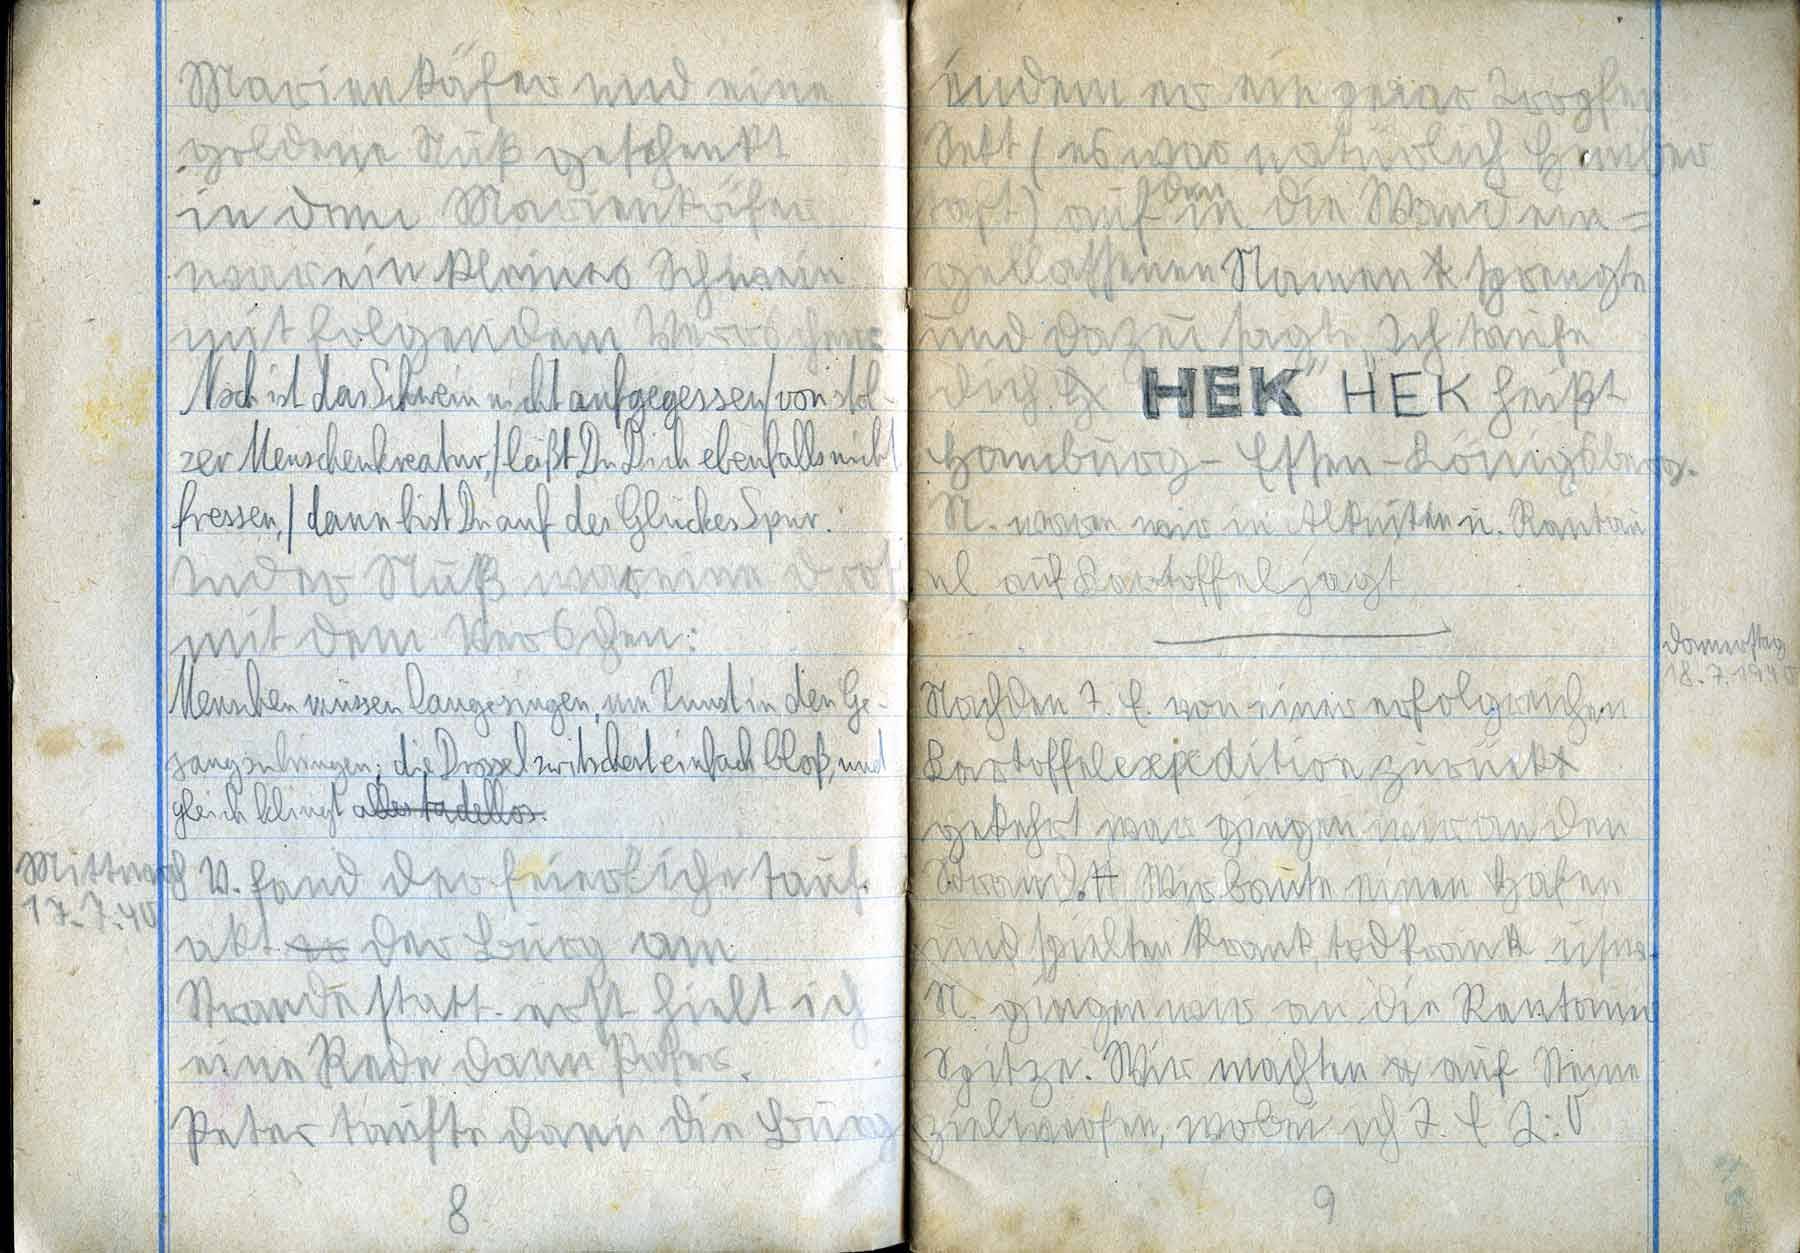 Marienkäfer und eine
goldene Nuß geschenkt
in dem Marienkäfer
war ein kleines Schwein
mit folgendem Verschen:
Noch ist das Schwein nicht aufgegessen/von stol-
zer Menschenkreatur,/läßt Du Dich ebenfalls nicht
fressen,/dann bist Du auf des Glückes Spur.
In der Nuß war eine Dro
mit dem Verschen:
Menschen müssen lange singen, um Kunst in den Ge-
sang zu bringen; die Drossel zwitschert einfach bloß, und
gleich klingt alles tadellos.
Mittwoch
17.7.40
N. fand der feierliche Tauf
akt der Burg am
Strande statt. erst hielt ich
eine Rede dann Peter.
Peter taufte dann die Burg
8
indem er ein paar Tropfen
Sekt (es war natürlich Himber
saft) auf den in die Wand ein=
gelassenen Namen sprengte
und dazu sagte Ich taufe
dich HEK" HEK heißt
Hamburg-Essen-Königsberg.
N. waren wir in Alknisten u. Rantau
el auf Kartoffeljagt
Donnerstag
18.7.1940
Nachden I. E. von einer erfolgreichen
Kartoffelexpedition zurück
gekehrt war gingen wir an den
Strand. Wir baute einen Hafen
und spielten krank, todkrank usw.
N. gingen wir an die Rantauer
Spitze. Wir machten auf Steine
zielwerfen, wobei ich I. E 2:0
9